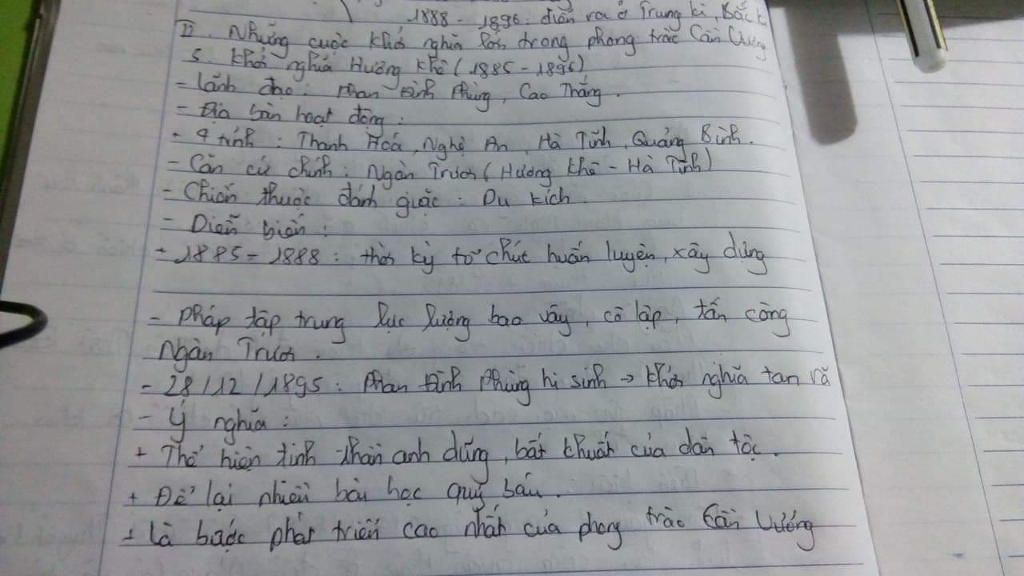 1888 - 1896: diễn ra ở Trung kì, Bắc k
II. Những cuộc khởi nghĩa lớn trong phong trào Cần Vương
5. Khởi nghĩa Hương Khê (1885 - 1896)
- Lãnh đạo: Phan Đình Phùng, Cao Thắng.
- Địa bàn hoạt động:
+ 4 tỉnh: Thanh Hoá, Nghệ An, Hà Tĩnh, Quảng Bình.
- Căn cứ chính: Ngàn Trươi (Hương Khê - Hà Tĩnh)
- Chiến thuật đánh giặc: Du kích.
- Diễn biến:
+ 1885 - 1888: thời kỳ tổ chức huấn luyện, xây dựng
- Pháp tập trung lực lượng bao vây, cô lập, tấn công
Ngàn Trươi.
- 28/12/1895: Phan Đình Phùng hi sinh → khởi nghĩa tan rã
- Ý nghĩa:
+ Thể hiện tinh thần anh dũng, bất khuất của dân tộc.
+ Để lại nhiều bài học quý báu.
+ Là bước phát triển cao nhất của phong trào Cần Vương